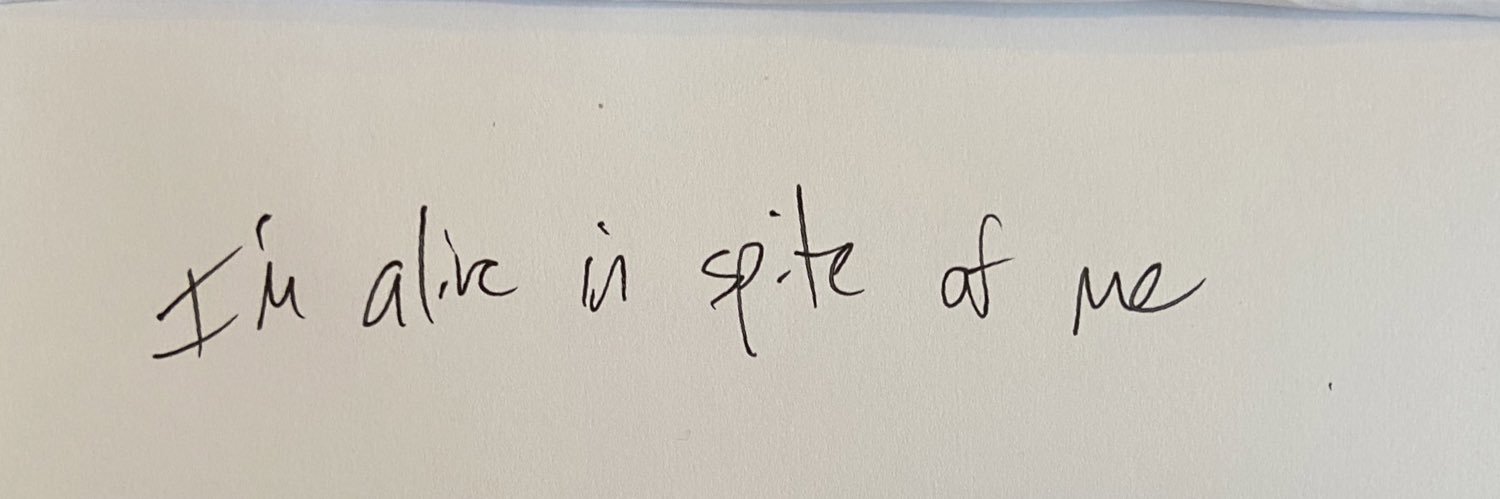 I'm alive in spite of me